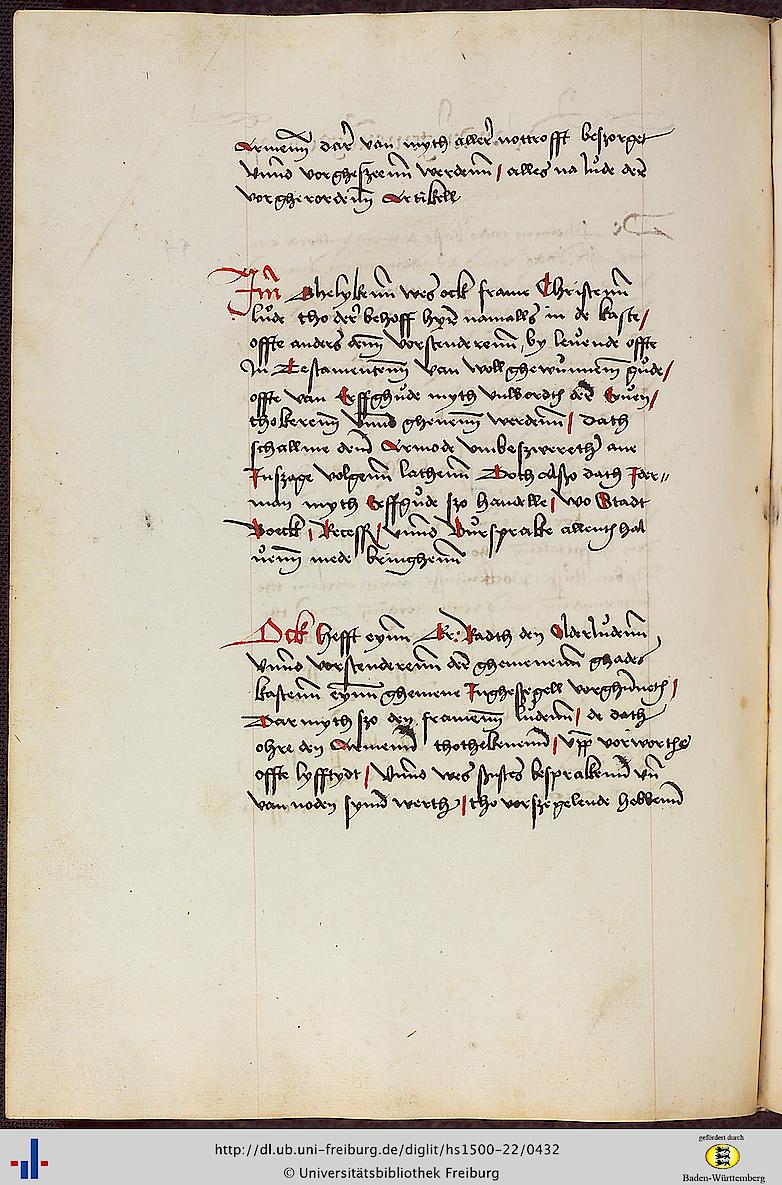 Armenn dar van myth aller nottrofft beszorget
vnnd vorgheszeenn werdenn / alles na lude der
vorgherordenn Artikell
Jnn Ghelykenn wes ock frame Christenn
lude tho der behoff hyr namalls in de kaste /
offte anders denn vorstenderenn by levende offte
Jn Testamentenn van wollghewunnenn gude /
offte van Erffghude myth vulbordt der Euen /
thokerenn vnnd ghevenn werdenn / dath
schall me denn Armode vnbeszwereth ane
Jnszage volgenn lathenn Doch Alszo dath Jder-
man myth Erffgude szo handelle / wo Stadt
Boeck / Recess / vnnd Bursprake allenthal
uenn mede bringhenn
Ock hefft eynn Er: Radth den Olderludenn
vnnd vorstenderenn der ghemenenn ghades
kastenn eynn ghemene Jnghesegell vorghunneth /
Dar myth szo den framenn ludenn / de dath
ohre den Armenn thothekenenn / vpp vorworthe
offte lyfftydt / vnnd wes sustes besprakenn vn
van noden synnd werth / tho vorszegelende hebbenn
http://dl.ub.uni-freiburg.de/diglit/hs1500-22/0432
© Universitätsbibliothek Freiburg
gefördert durch
Baden-Württemberg